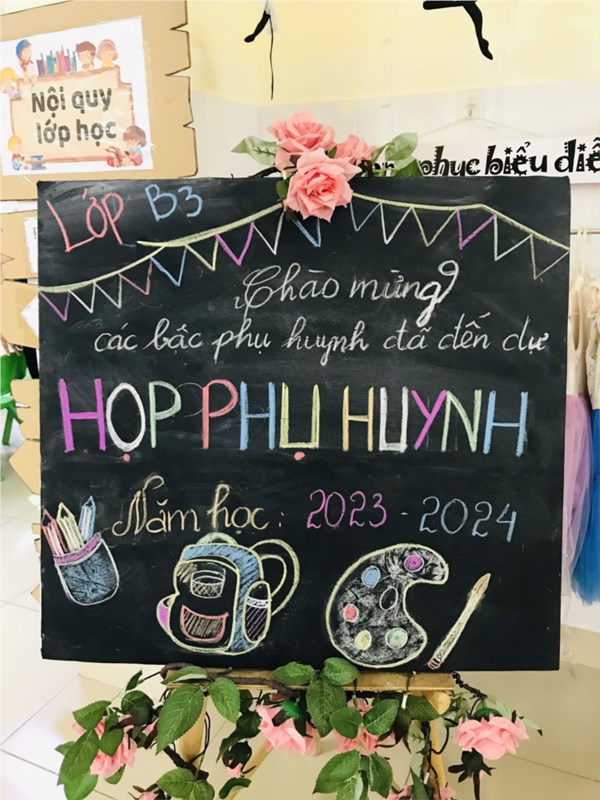 Nội quy
lớp học
phục biểu diễ
LỚP B3
Chào mừng
các bậc phụ huynh đã đến dự
HỌP PHỤ HUYNH
Năm học: 2023 - 2024